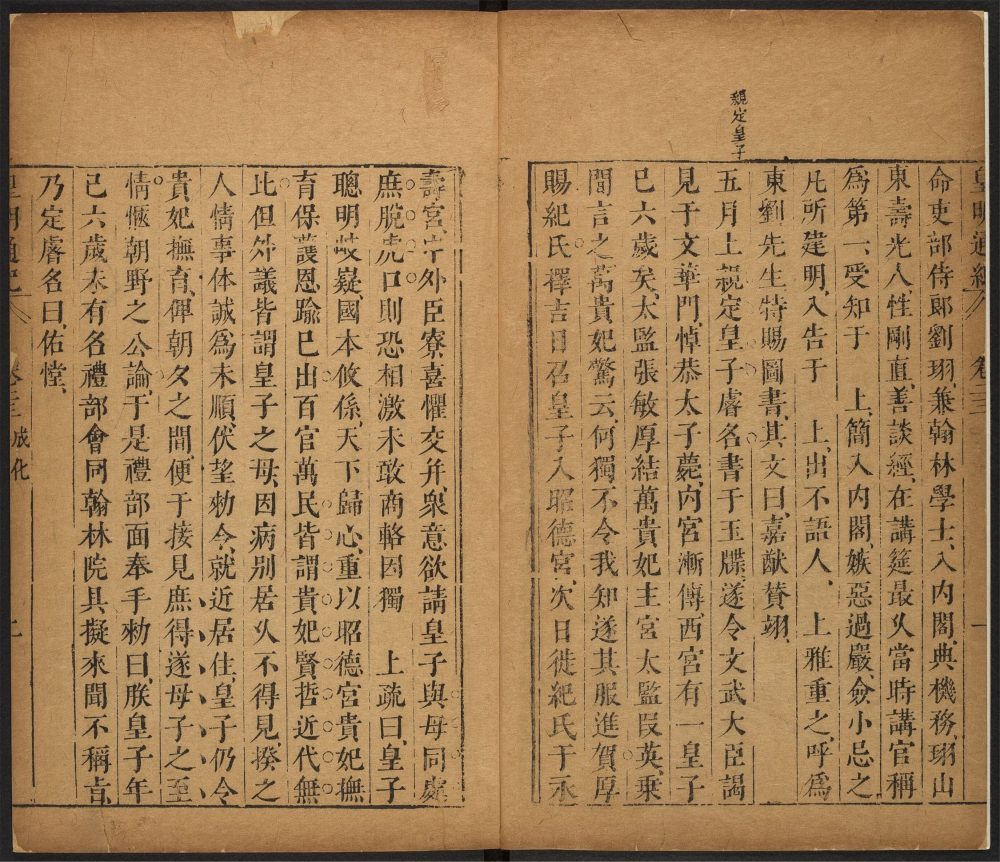 親定皇子
皇明通紀 卷二十三 一
命吏部侍郎劉珝兼翰林學士入內閣典機務珝山
東壽光人性剛直善談經在講筵最久當時講官稱
爲第一受知于 上簡入內閣嫉惡過嚴僉小忌之
凡所建明入告于 上出不語人 上雅重之呼爲
東劉先生特賜圖書其文曰嘉猷贊翊
五月上親定皇子睿名書于玉牒遂令文武大臣謁
見于文華門悼恭太子薨內宮漸傳西宮有一皇子
已六歲矣太監張敏厚結萬貴妃主宮太監叚英乘
間言之萬貴妃驚云何獨不令我知遂其服進賀厚
賜紀氏擇吉日召皇子入昭德宮次日徙紀氏于永
壽宮中外臣寮喜懼交并衆意欲請皇子與母同處
庶脫虎口則恐相激未敢商輅因獨 上疏曰皇子
聰明岐嶷國本攸係天下歸心重以昭德宮貴妃撫
育保護恩踰己出百官萬民皆謂貴妃賢哲近代無
比但外議皆謂皇子之母因病别居久不得見揆之
人情事体誠爲未順伏望勑令就近居住皇子仍令
貴妃撫育俾朝夕之間便于接見庶得遂母子之至
情愜朝野之公論于是禮部面奉手勑曰朕皇子年
已六歲未有名禮部會同翰林院具擬來聞不稱旨
乃定睿名曰佑樘
皇明通紀 成化 二